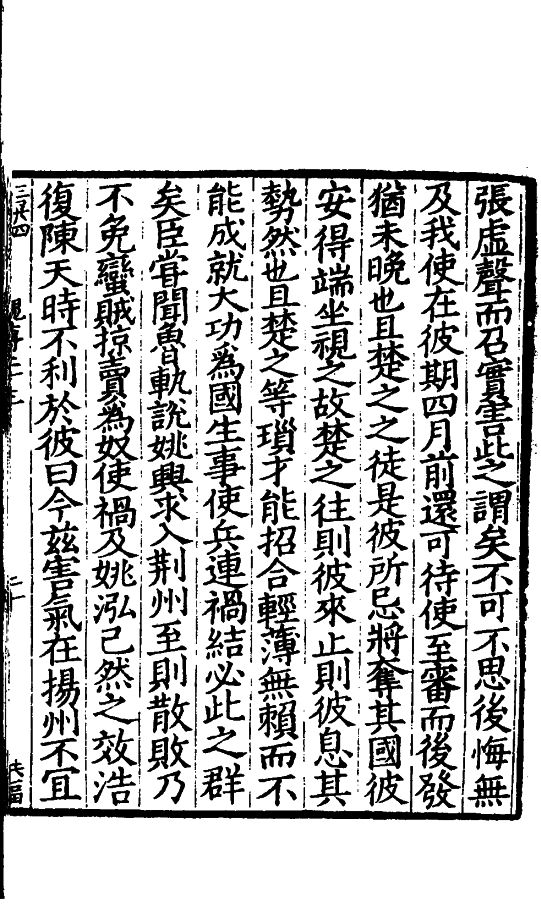 張虛聲而召實害此之謂矣不可不思後悔無
及我使在彼期四月前還可待使至審而後發
猶未晚也且楚之之徒是彼所忌將奪其國彼
安得端坐視之故楚之往則彼來止則彼息其
勢然也且楚之等瑣才能招合輕薄無賴而不
能成就大功為國生事使兵連禍結必此之群
矣臣甞聞魯軌說姚興求入荆州至則散敗乃
不免蠻賊掠賣為奴使禍及姚泓已然之效浩
復陳天時不利於彼曰今茲害氣在揚州不宜
二